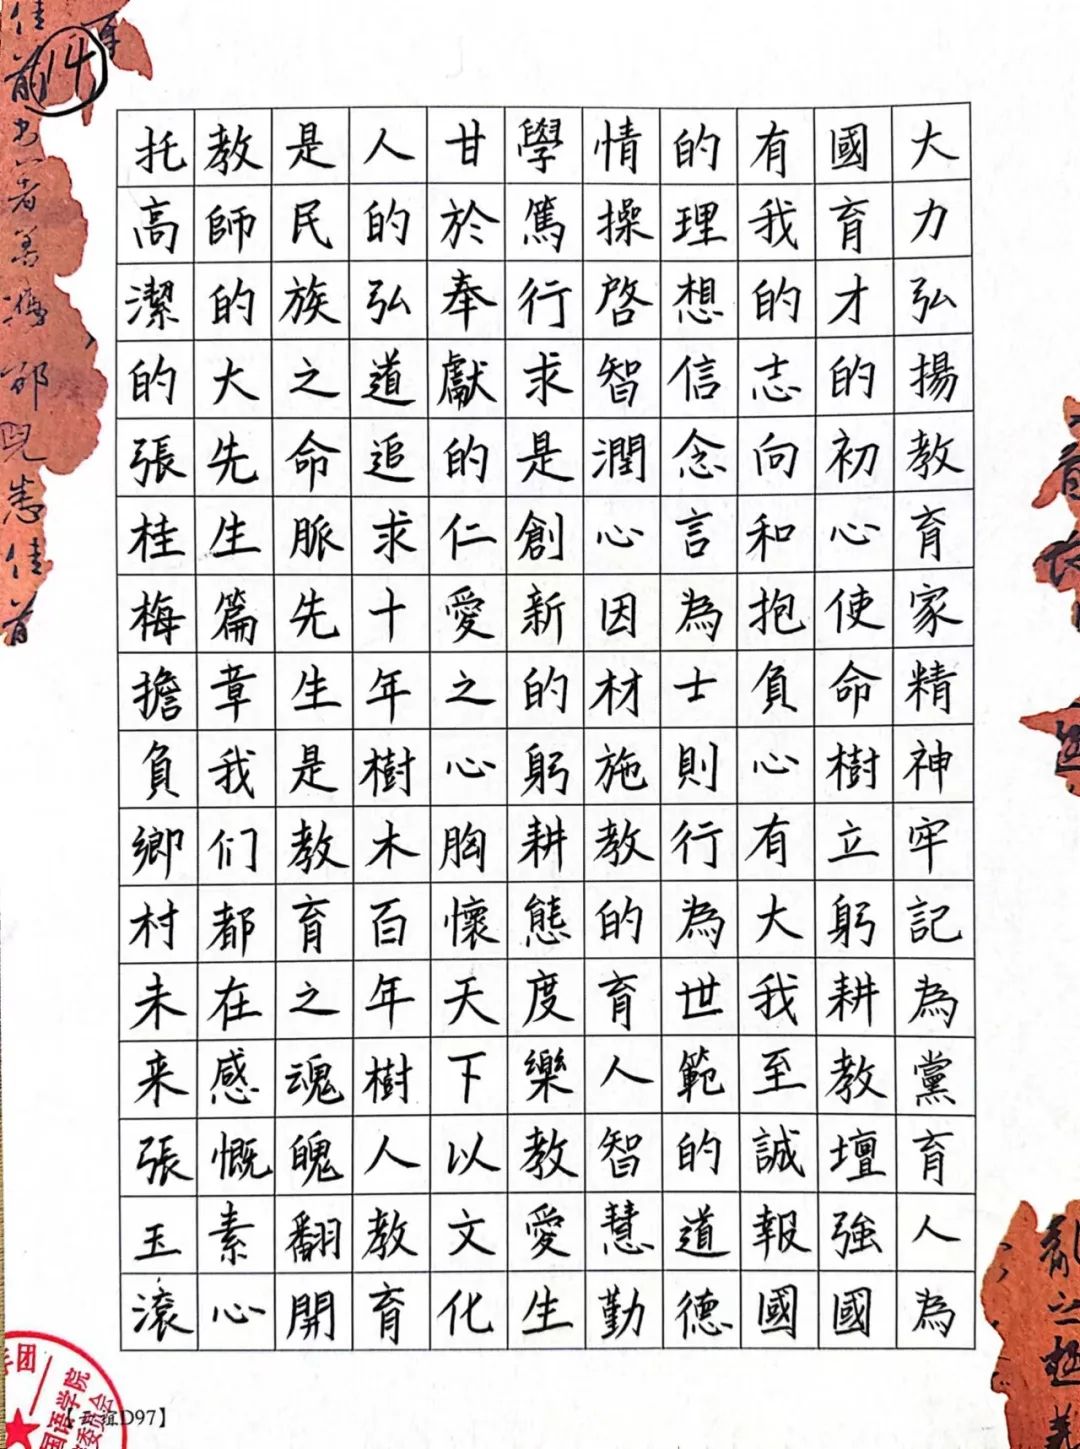 大力弘揚教育家精神牢記為黨育人為
國育才的初心使命樹立躬耕教壇強國
有我的志向和抱負心有大我至誠報國
的理想信念言為士則行為世範的道德
情操啓智潤心因材施教的育人智慧勤
學篤行求是創新的躬耕態度樂教愛生
甘於奉獻的仁愛之心胸懷天下以文化
人的弘道追求十年樹木百年樹人教育
是民族之命脈先生是教育之魂魄翻開
教師的大先生篇章我们都在感慨素心
托高潔的張桂梅擔負鄉村未来張玉滾
14
D97】